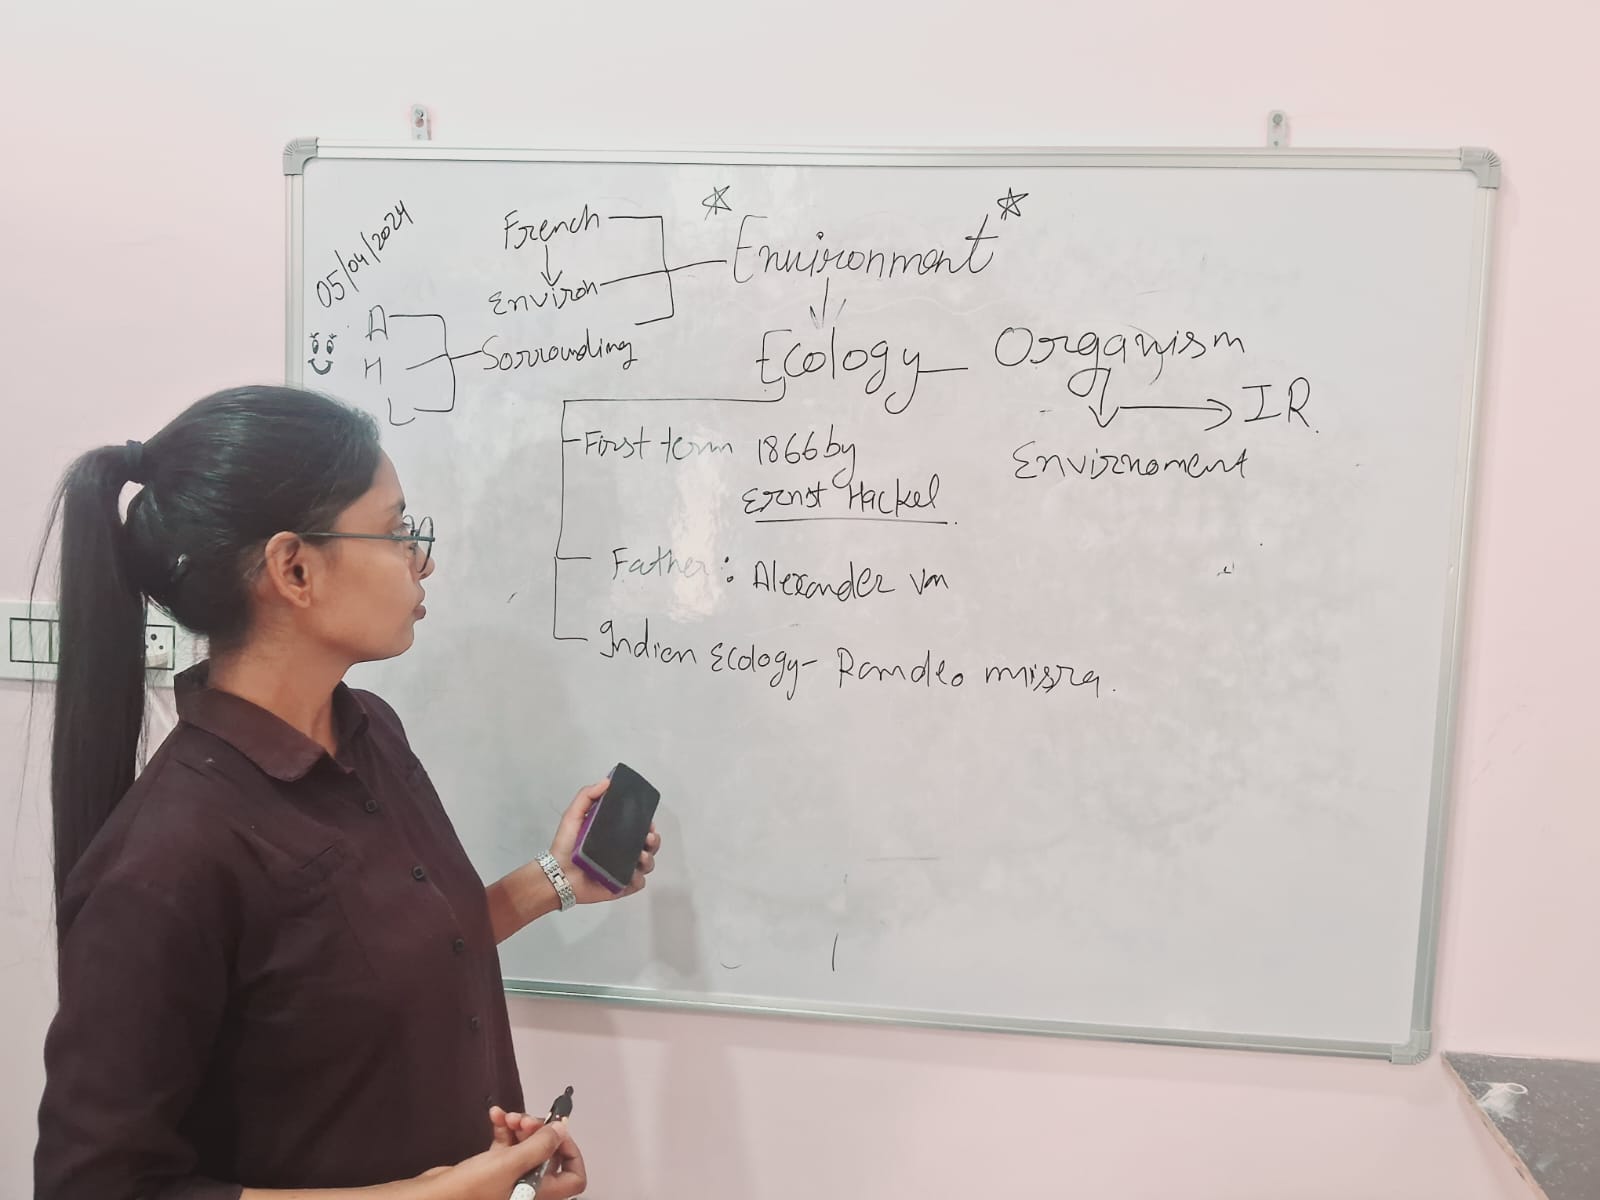 05/04/2024
French
Environ
Environment
A
H
L
Sorrounding
Ecology
Organism
IR.
Envirnoment
First term 1866 by
Ernst Hackel.
Father : Alexander Von
Indian Ecology- Ramdeo misra.